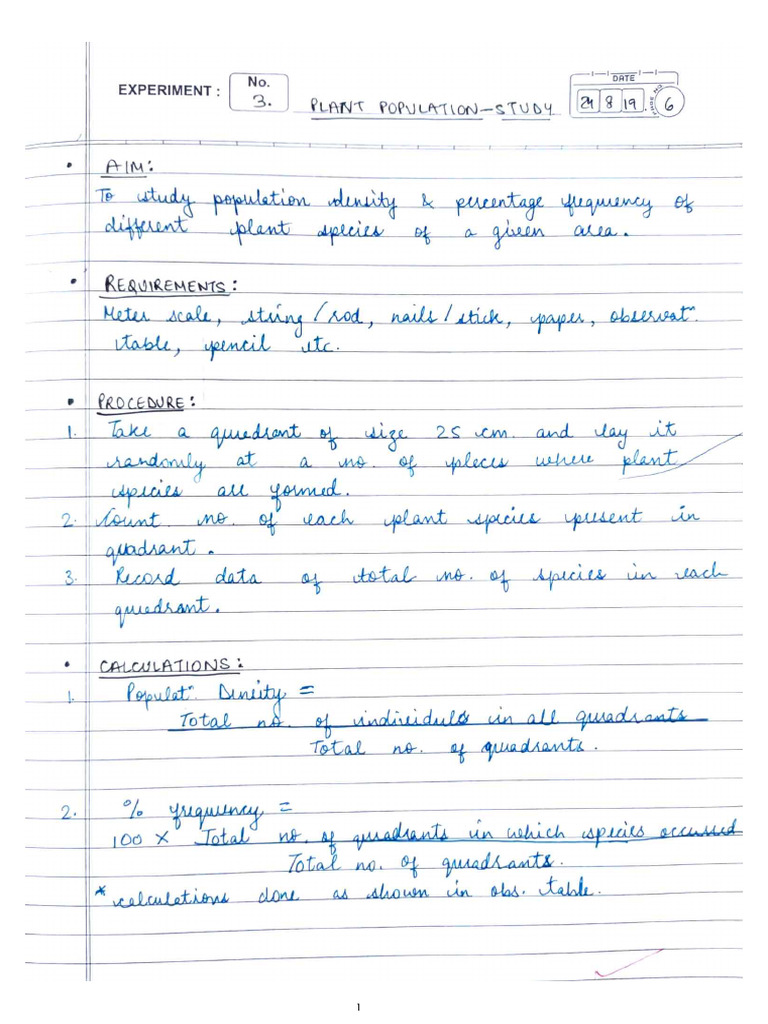 EXPERIMENT : No. 3. PLANT POPULATION-STUDY DATE 29 8 19 6
• AIM:
To study population density & percentage frequency of
different plant species of a given area.
• REQUIREMENTS:
Meter scale, string/rod, nails/stick, paper, observatn.
table, pencil etc.
• PROCEDURE:
1. Take a quedrant of size 25 cm. and lay it
randomly at a no. of pleces where plant
species are formed.
2. Count no. of each plant species present in
quadrant.
3. Record data of total no. of species in each
quedrant.
• CALCULATIONS:
1. Populatn. Density =
Total no. of individuls in all quadrants
Total no. of quadrants.
2. % frequency =
100 × Total no. of quadrants in which species occurred
Total no. of quadrants.
* calculations done as shown in obs. table.
1